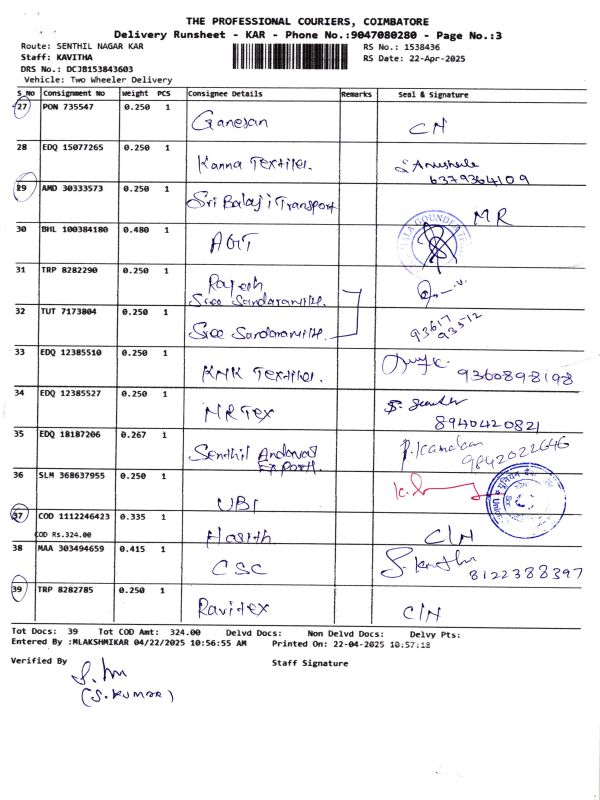 THE PROFESSIONAL COURIERS, COIMBATORE
Delivery Runsheet - KAR - Phone No.:9047080280 - Page No.:3
Route: SENTHIL NAGAR KAR RS No.: 1538436
Staff: KAVITHA RS Date: 22-Apr-2025
DRS No.: DCJB153843603
Vehicle: Two Wheeler Delivery
S_No Consignment No Weight PCS Consignee Details Remarks Seal & Signature
27 PON 735547 0.250 1
Ganesan CN
28 EDQ 15077265 0.250 1
Kanna Textiles.
6379364109
29 AMD 30333573 0.250 1
Sri Balaji Transport MR
30 BHL 100384180 0.480 1
AGT
31 TRP 8282290 0.250 1
Rajesh
Sree
32 TUT 7173804 0.250 1
Sree
93617
93512
33 EDQ 12385510 0.250 1
KNK Textiles. 9360898198
34 EDQ 12385527 0.250 1
NR Tex
8940420821
35 EDQ 18187206 0.267 1
Senthil Andavar P. Kandan
Export. 9842022646
36 SLM 368637955 0.250 1
UBI
37 COD 1112246423 0.335 1
COD Rs.324.00
Harith C/N
38 MAA 303494659 0.415 1
CSC 8122388397
39 TRP 8282785 0.250 1
Ravitex C/N
Tot Docs: 39 Tot COD Amt: 324.00 Delvd Docs: Non Delvd Docs: Delvy Pts:
Entered By :MLAKSHMIKAR 04/22/2025 10:56:55 AM Printed On: 22-04-2025 10:57:18
Verified By Staff Signature
(S. KUMAR)